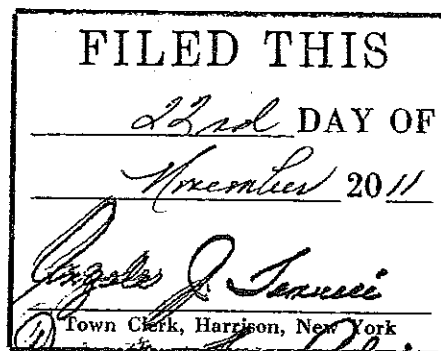 FILED THIS
22nd DAY OF
November 2011
J.
Town Clerk, Harrison, New York